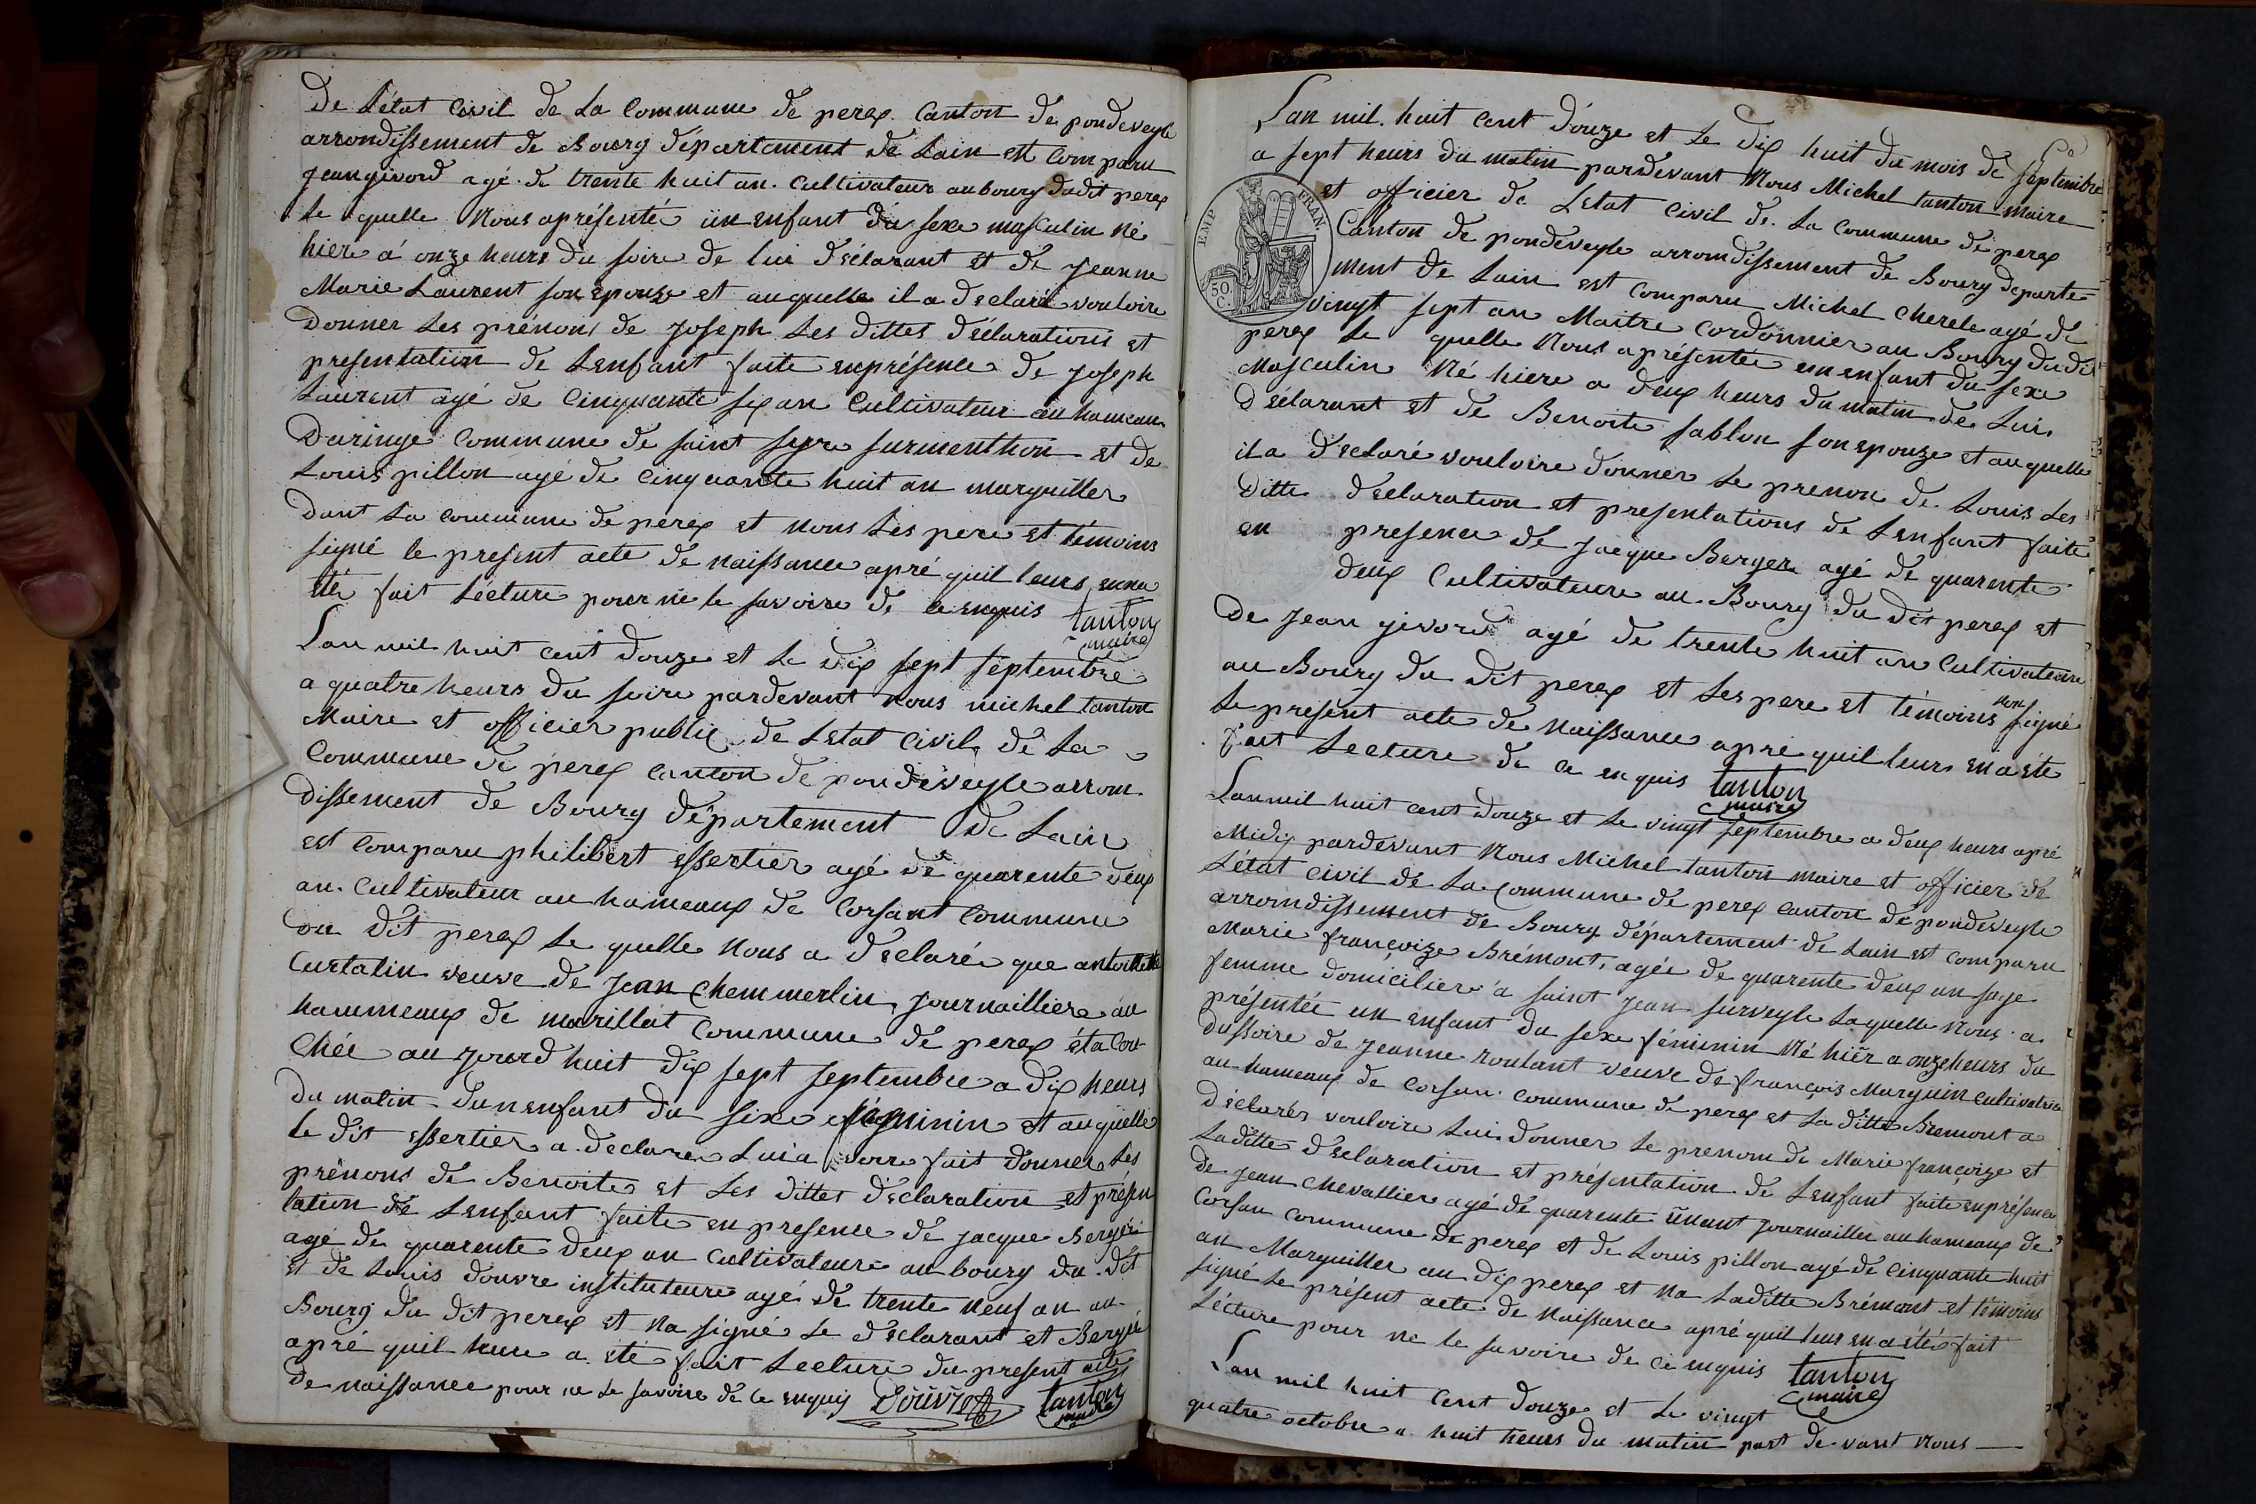 De Létat civil de La Commune de perex Canton de pondeveyle
arrondissement de Bourg Département de Lain est comparu
jean givord agé de trente huit an Cultivateur au bourg dudit perex
le quelle Nous aprésenté un enfant du sexe masculin Né
hiere á onze heure du soire de lui déclarant et de Jeanne
Marie Laurent son epouze et auquelle il a declaré vouloire
donner Les prénons de joseph Les dittes déclarations et
presentation de Lenfant faite enprésence de joseph
Laurent agé de Cinquante six an Cultivateur au hameau
Duringe Commune de saint Syre surmenthon et de
Louis pillon agé de Cinquante huit an marguiller
dant La commune de perex et nous Les pere et témoins
signé le present acte de naissance apré quil leurs enna
été fait Lécture pour ne le savoire de ce enquis tanton
maire
Lan mil huit cent douze et Le dix sept septembre
a quatre heurs du soire pardevant nous michel tanton
Maire et officier public de Letat civil de La
Commune de perex canton de pondeveyle arron
dissement de Bourg Département de Lain
est comparu philibert essertier agé de quarente deux
an Cultivateur au hameaux de Corsant Commune
du dit perex Le quelle Nous a declaré que antoinette
Curtalin veuve de Jean Chemmerlin journailliere au
hammeaux de marillat Commune de perex et acou
chée au jourd huit dix sept septembre a dix heurs
du matin dun enfant du sexe féminin et auquelle
le dit essertier a declare Luia voir fait donner Les
prénons de Benoite et Les dittes déclaration et présen
tation de Lenfant faite en presence de jacque Berger
agé de quarente deux an Cultivateure au bourg du dit
et de Louis douvre instituteure agé de trente neuf an au
Bourg du dit perex et Na signé Le déclarant et Berger
apré quil leure a été fait Lecture du present acte
de naissance pour ne Le savoire de ce enquis Douvre tanton
maire
Lan mil huit cent douze et Le dix huit du mois de septembre
a sept heurs du matin pardevant Nous Michel tanton maire
et officier de Létat civil de La Commune de perex
EMP FRAN.
50 C.
Canton de pondeveyle arrondissement de Bourg departe
ment de Lain est comparu Michel cherele agé de
vingt sept an Maitre Cordonnier au Bourg du dit
perex Le quelle Nous aprésente un enfant du sexe
Masculin Né hiere a deux heurs du matin de Lui
déclarant et de Benoite sablon son epouze et auquelle
il a declaré vouloire donner Le prenon de Louis Les
ditte declaration et presentations de Lenfant faite
en presence de jacque Berger agé de quarente
deux Cultivateure au Bourg du dit perex et
de jean givord agé de trente huit an Cultivateure
au Bourg du dit perex et Les pere et témoins non signé
Le présent acte de Naissance apré quil leurs en a été
fait Lecture de ce enquis tanton
maire
Lan mil huit cent douze et Le vingt septembre a deux heurs apré
Midy pardevant Nous Michel tanton maire et officier de
Létat civil de La Commune de perex canton de pondeveyle
arrondissement de Bourg département de Lain est comparu
Marie françoize Brémont, agée de quarente deux an sage
femme domicilier á saint jean surveyle Laquelle Nous a
présentée un enfant du sexe féminin Né hier a onze heurs du
dussoire de jeanne roulant veuve de françois Marguin cultivatrice
au hameaux de Corsan commune de perex et La ditte Bremont a
déclarés vouloire Lui donner Le prenom de Marie françoize et
Laditte déclaration et présentation de Lenfant faite enprésence
de jean chevallier agé de quarente unant journaillier au hameaux de
Corsan commune de perex et de Louis pillon agé de Cinquante huit
an Marguiller au dix perex et Na Laditte Brémont et témoins
signé Le présent acte de Naissance apré quil leur en a étés fait
Lécture pour ne le savoire de ce enquis tanton
maire
Lan mil huit cent douze et Le vingt
quatre octobre a huit heurs du matin part de vant nous